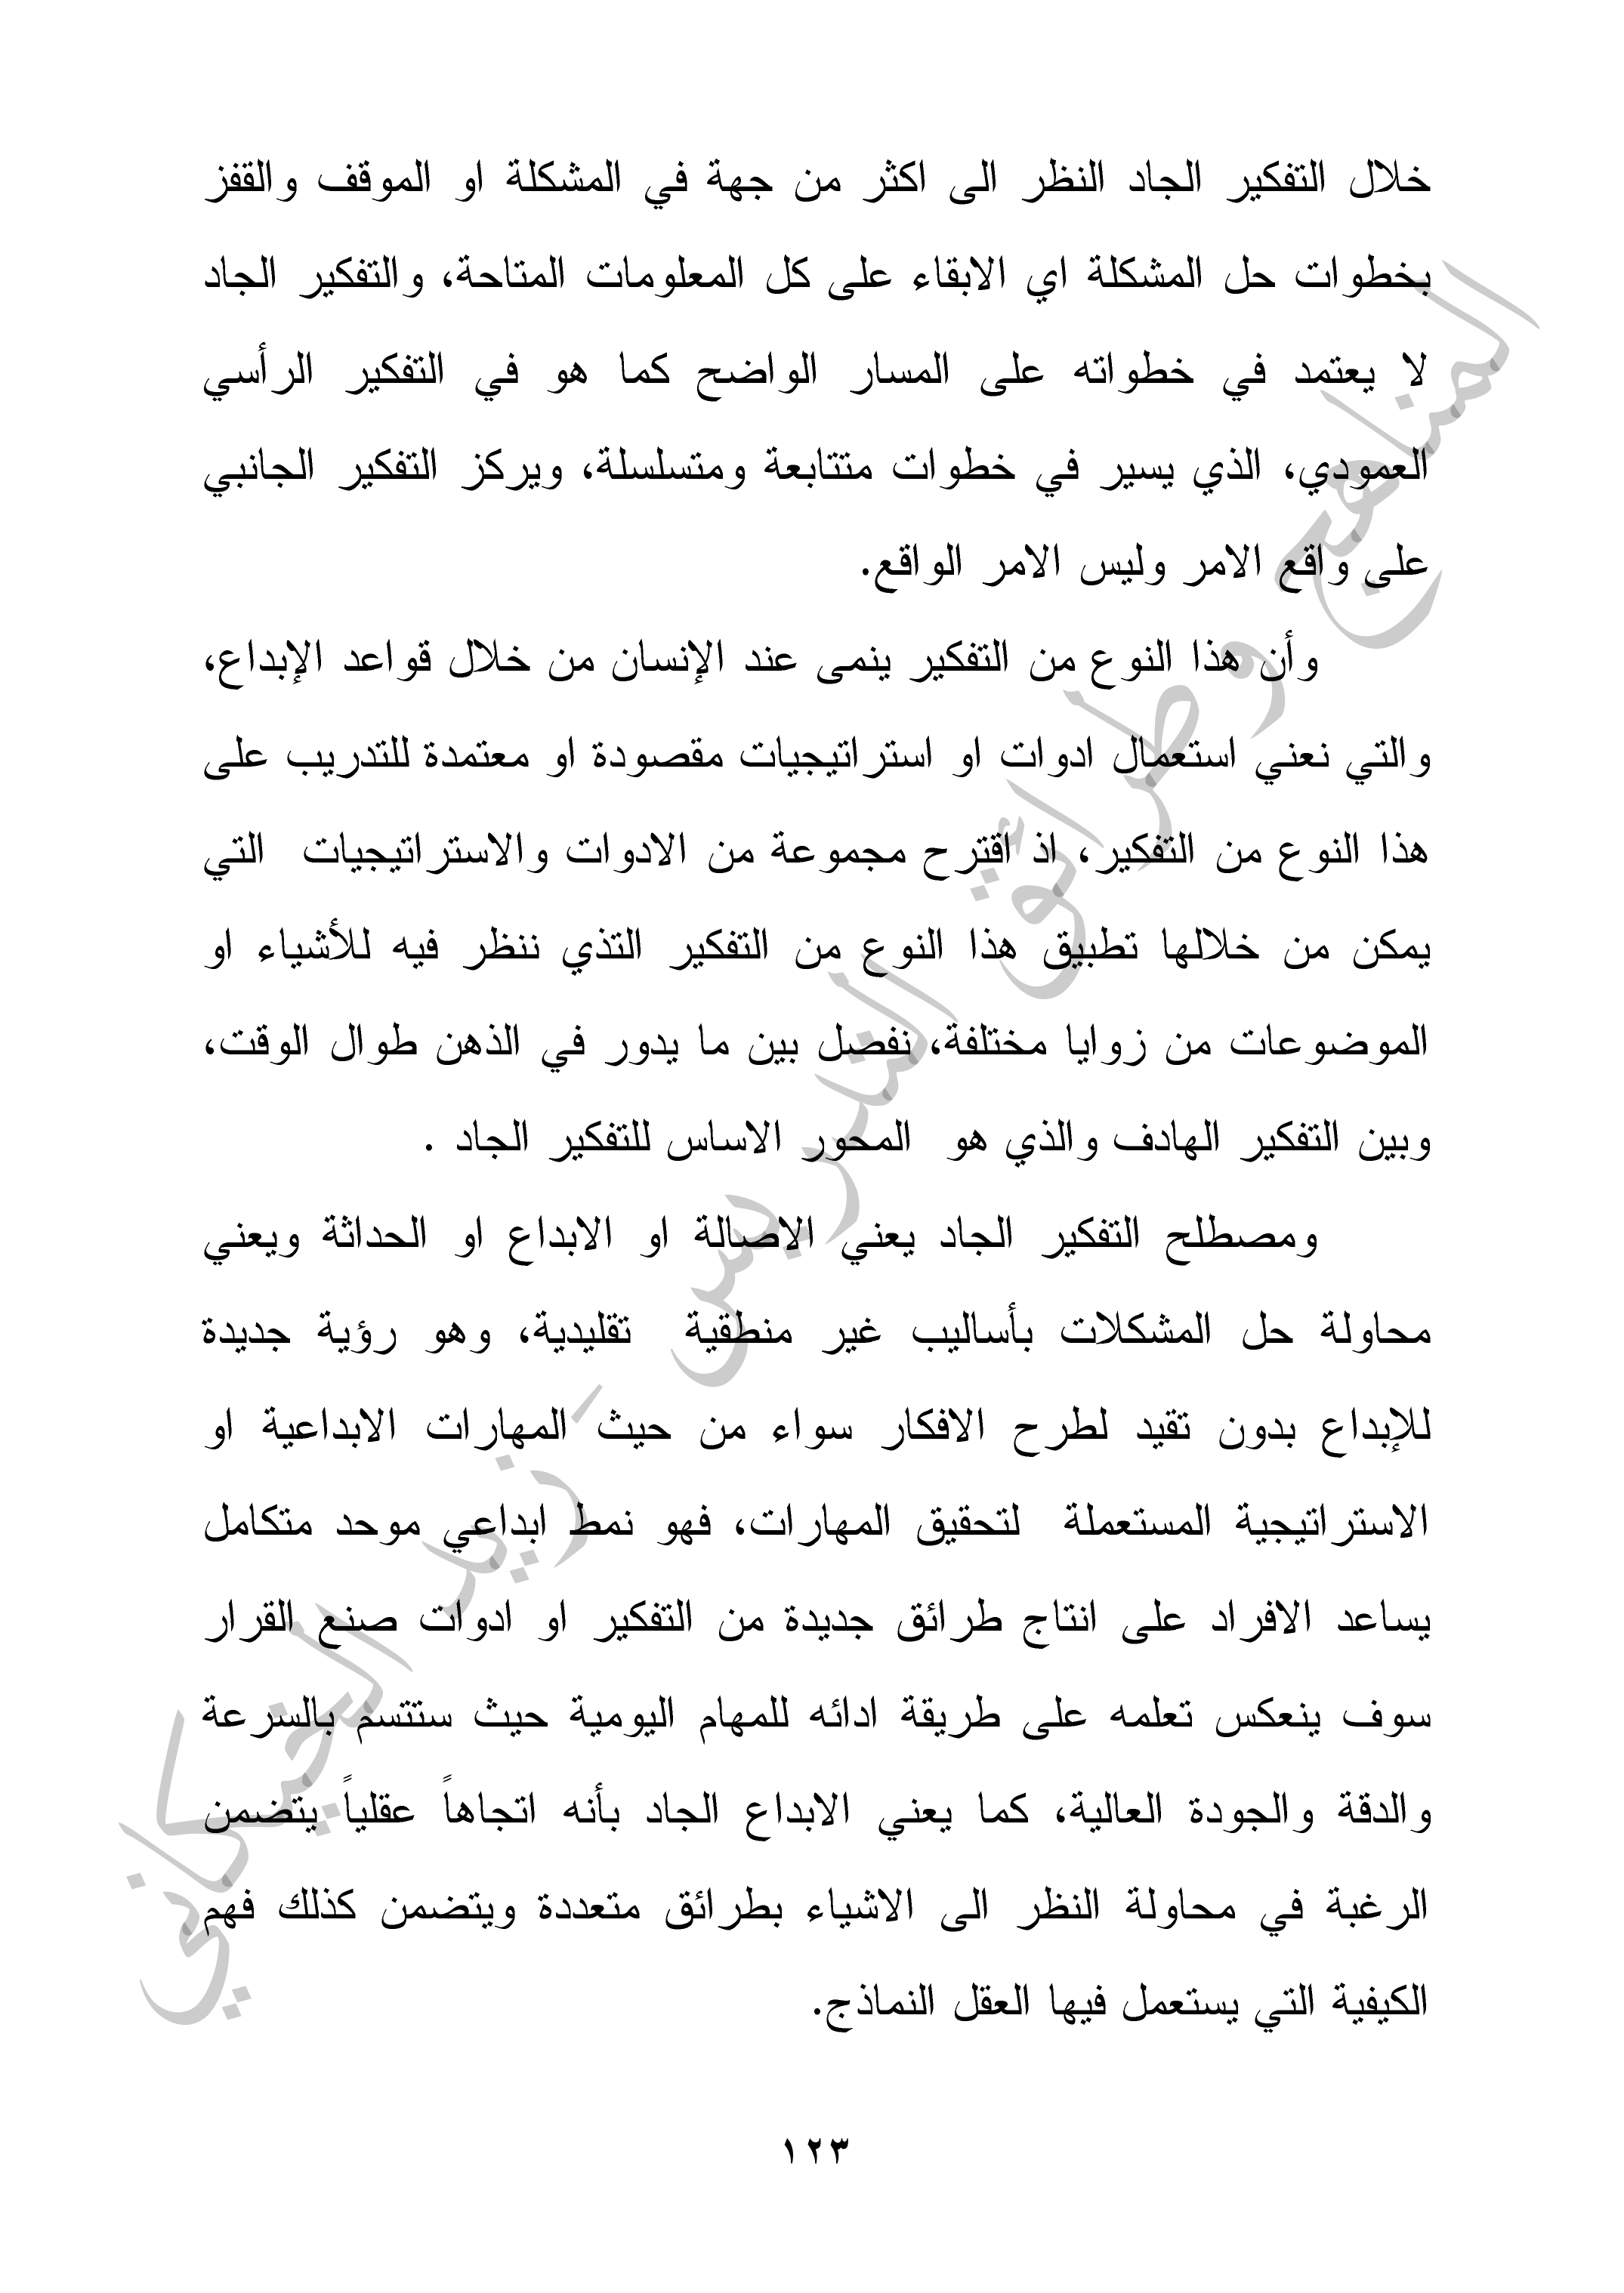 خلال التفكير الجاد النظر الى اكثر من جهة في المشكلة او الموقف والقفز
بخطوات حل المشكلة اي الابقاء على كل المعلومات المتاحة، والتفكير الجاد
لا يعتمد في خطواته على المسار الواضح كما هو في التفكير الرأسي
العمودي، الذي يسير في خطوات متتابعة ومتسلسلة، ويركز التفكير الجانبي
على واقع الامر وليس الامر الواقع.
وأن هذا النوع من التفكير ينمى عند الإنسان من خلال قواعد الإبداع،
والتي نعني استعمال ادوات او استراتيجيات مقصودة او معتمدة للتدريب على
هذا النوع من التفكير، اذ اقترح مجموعة من الادوات والاستراتيجيات التي
يمكن من خلالها تطبيق هذا النوع من التفكير التذي ننظر فيه للأشياء او
الموضوعات من زوايا مختلفة، نفصل بين ما يدور في الذهن طوال الوقت،
وبين التفكير الهادف والذي هو المحور الاساس للتفكير الجاد .
ومصطلح التفكير الجاد يعني الاصالة او الابداع او الحداثة ويعني
محاولة حل المشكلات بأساليب غير منطقية تقليدية، وهو رؤية جديدة
للإبداع بدون تقيد لطرح الافكار سواء من حيث المهارات الابداعية او
الاستراتيجية المستعملة لتحقيق المهارات، فهو نمط ابداعي موحد متكامل
يساعد الافراد على انتاج طرائق جديدة من التفكير او ادوات صنع القرار
سوف ينعكس تعلمه على طريقة ادائه للمهام اليومية حيث ستتسم بالسرعة
والدقة والجودة العالية، كما يعني الابداع الجاد بأنه اتجاهاً عقلياً يتضمن
الرغبة في محاولة النظر الى الاشياء بطرائق متعددة ويتضمن كذلك فهم
الكيفية التي يستعمل فيها العقل النماذج.
١٢٣
المناهج وطرائق التدريس - زيد الخيكاني